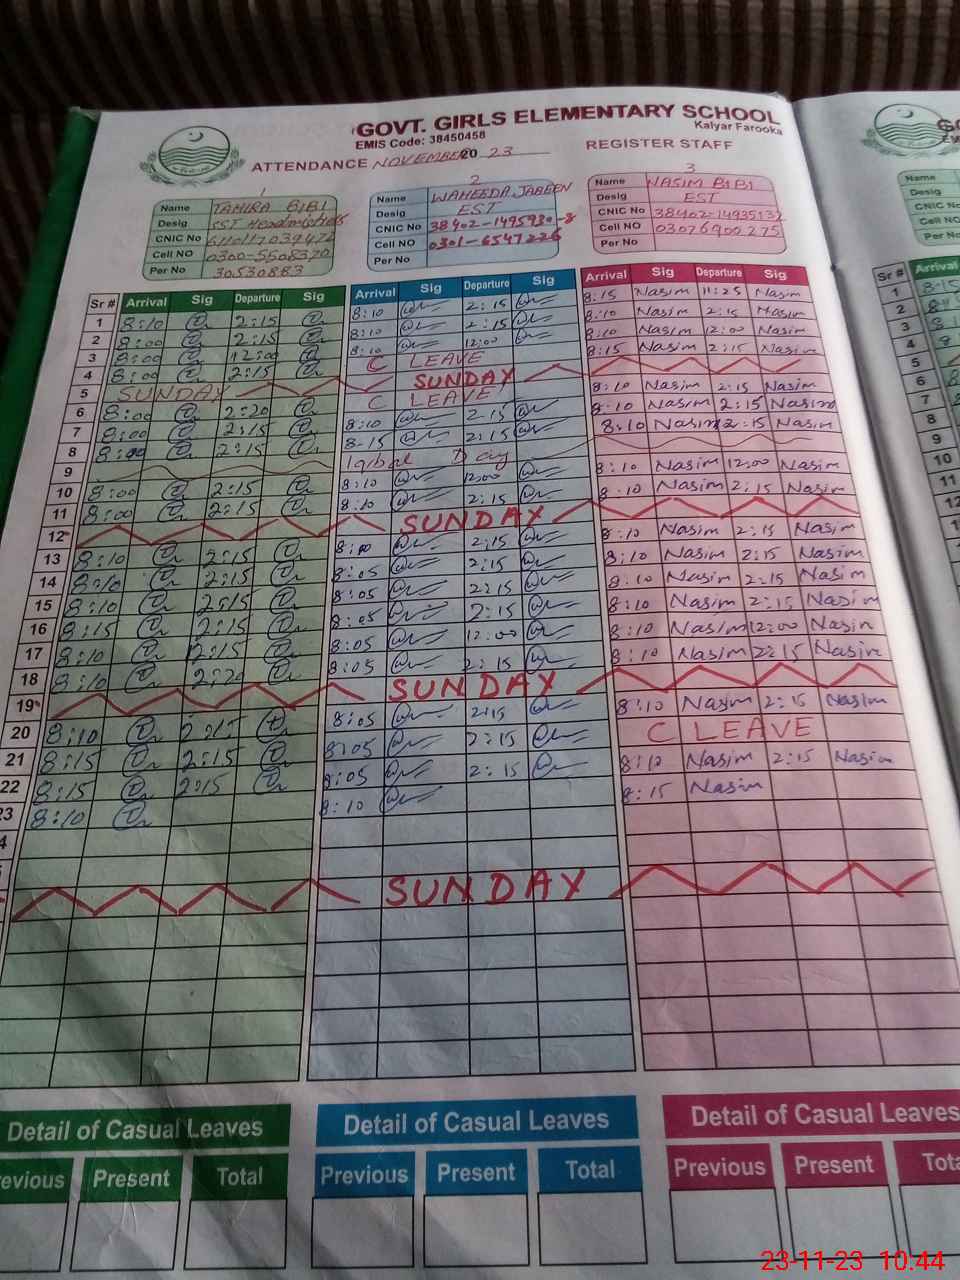 GOVT. GIRLS ELEMENTARY SCHOOL
Kalyar Farooka
EMIS Code: 38450458
ATTENDANCE NOVEMBER 20 23 REGISTER STAFF
1 2 3
Name TAHIRA BIBI
Desig SST Headmistress
CNIC No
Cell NO 0300-5508320
Per No 30530883
Name WAHEEDA JABEEN
Desig EST
CNIC No 38402-1495930-8
Cell NO 0301-6547226
Per No
Name NASIM BIBI
Desig EST
CNIC No
Cell NO 03076900275
Per No
Sr # Arrival Sig Departure Sig Arrival Sig Departure Sig Arrival Sig Departure Sig
1 8:10 2:15 8:10 2:15 8:15 Nasim 11:25 Nasim
2 8:00 2:15 8:10 2:15 8:10 Nasim 2:15 Nasim
3 8:00 12:00 8:10 12:00 8:10 Nasim 12:00 Nasim
4 8:00 2:15 C LEAVE 8:15 Nasim 2:15 Nasim
5 SUNDAY SUNDAY
6 8:00 2:20 C LEAVE 8:10 Nasim 2:15 Nasim
7 8:00 2:15 8:10 2:15 8:10 Nasim 2:15 Nasim
8 8:00 2:15 8:15 2:15 8:10 Nasim 2:15 Nasim
9 Iqbal Day
10 8:00 2:15 8:10 12:00 8:10 Nasim 12:00 Nasim
11 8:00 2:15 8:10 2:15 8:10 Nasim 2:15 Nasim
12 SUNDAY
13 8:10 2:15 2:15 8:10 Nasim 2:15 Nasim
14 8:10 2:15 8:05 2:15 8:10 Nasim 2:15 Nasim
15 8:10 2:15 8:05 2:15 8:10 Nasim 2:15 Nasim
16 8:15 2:15 8:05 2:15 8:10 Nasim 2:15 Nasim
17 8:10 2:15 8:05 12:00 8:10 Nasim 12:00 Nasim
18 8:10 2:20 8:05 2:15 8:10 Nasim 2:15 Nasim
19 SUNDAY
20 8:10 2:15 8:05 2:15 8:10 Nasim 2:15 Nasim
21 8:15 2:15 8:05 2:15 C LEAVE
22 8:15 2:15 8:05 2:15 8:10 Nasim 2:15 Nasim
23 8:10 8:10 8:15 Nasim
SUNDAY
Detail of Casual Leaves Detail of Casual Leaves Detail of Casual Leaves
Previous Present Total Previous Present Total Previous Present Total
Name
Desig
CNIC No
Cell NO
Per No
Sr # Arrival
1
2
3
4
5
6
7
8
9
10
11
12
23-11-23 10.44